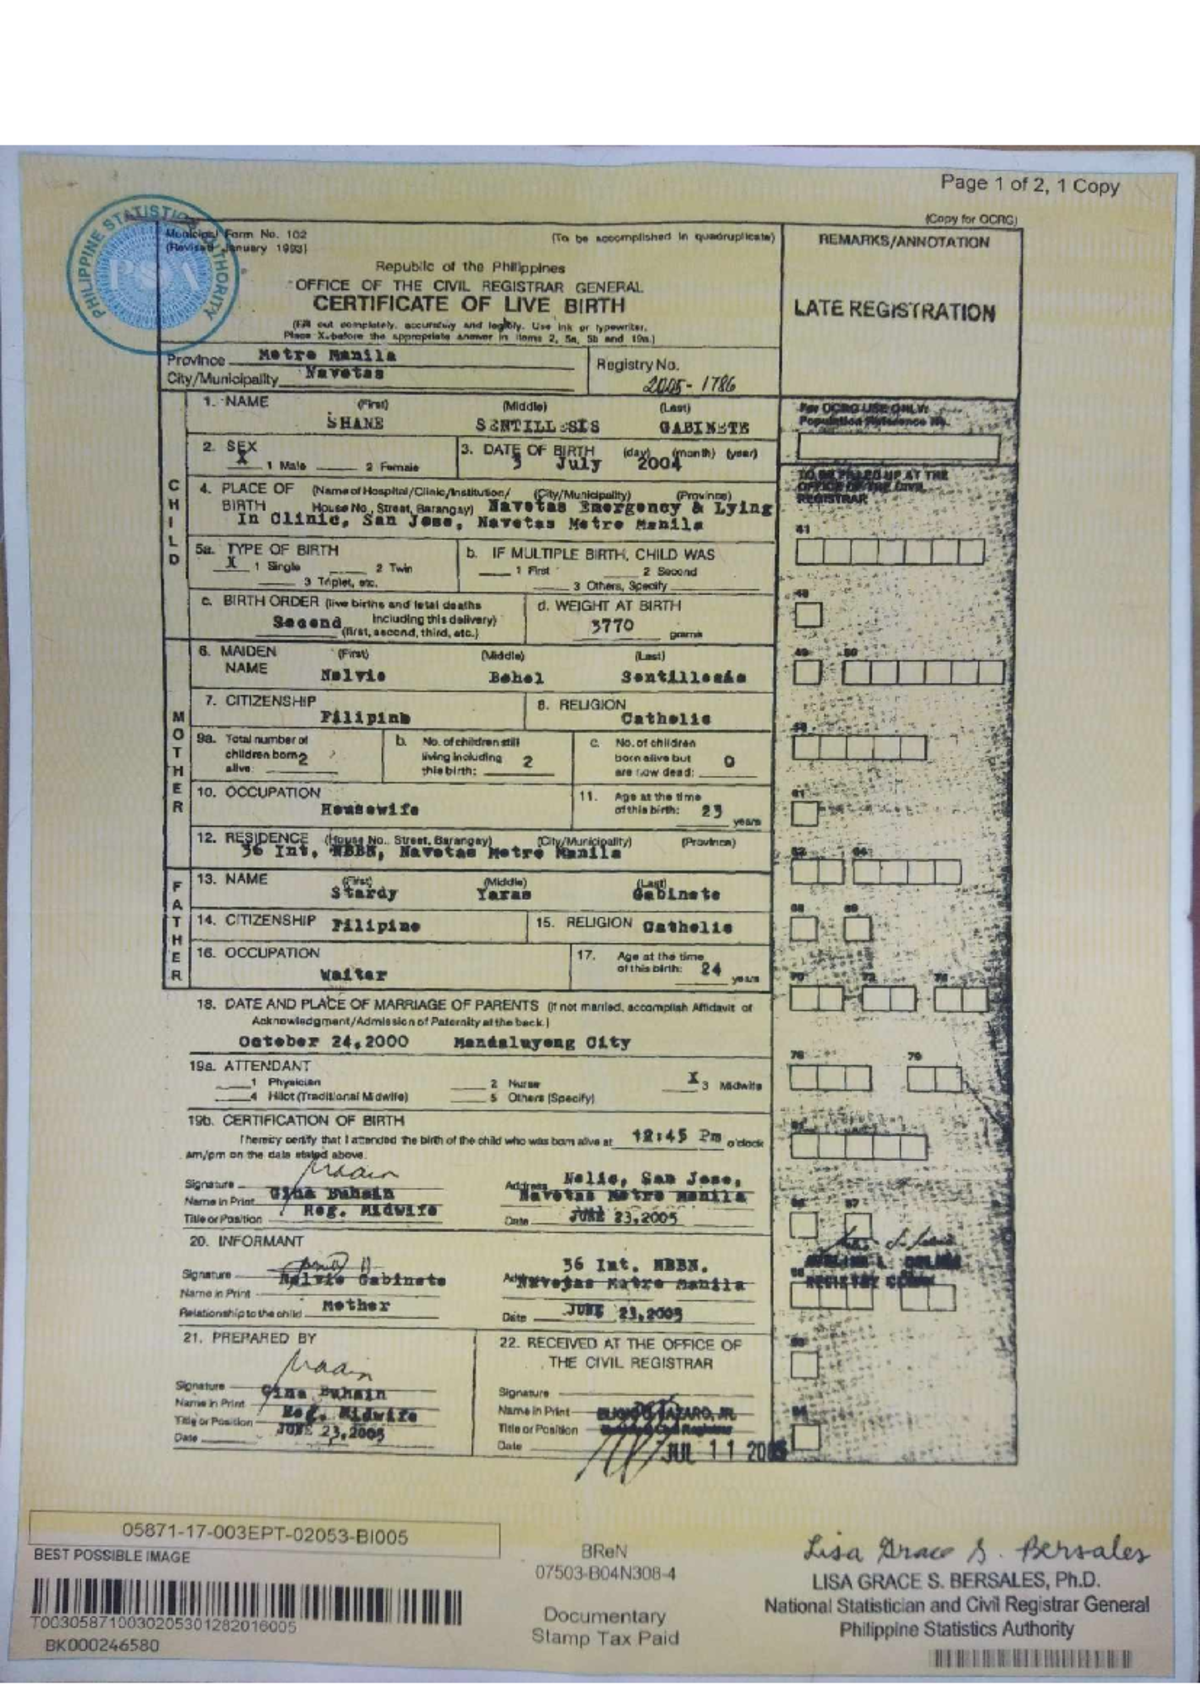 Page 1 of 2, 1 Copy
(Copy for OCRG)
PHILIPPINE STATISTICS AUTHORITY
PSA
Municipal Form No. 102
(Revised January 1993)
(To be accomplished in quadruplicate)
Republic of the Philippines
OFFICE OF THE CIVIL REGISTRAR GENERAL
CERTIFICATE OF LIVE BIRTH
(Fill out completely, accurately and legibly. Use ink or typewriter.
Place X before the appropriate answer in items 2, 5a, 5b and 19a.)
REMARKS/ANNOTATION
LATE REGISTRATION
Province Metro Manila
City/Municipality Navotas
Registry No.
2005-1786
For OCRG USE ONLY:
Population Reference No.
TO BE FILLED UP AT THE
OFFICE OF THE CIVIL
REGISTRAR
CHILD
1. NAME (First) (Middle) (Last)
SHANE SENTILLESIS GABINETE
2. SEX
X 1 Male 2 Female
3. DATE OF BIRTH (day) (month) (year)
3 July 2004
4. PLACE OF BIRTH (Name of Hospital/Clinic/Institution/ (City/Municipality) (Province)
House No., Street, Barangay) Navotas Emergency & Lying
In Clinic, San Jose, Navotas Metro Manila
5a. TYPE OF BIRTH
X 1 Single 2 Twin
3 Triplet, etc.
b. IF MULTIPLE BIRTH, CHILD WAS
1 First 2 Second
3 Others, Specify
c. BIRTH ORDER (live births and fetal deaths
Second including this delivery)
(first, second, third, etc.)
d. WEIGHT AT BIRTH
3770 grams
MOTHER
6. MAIDEN NAME (First) (Middle) (Last)
Nelvie Bohol Sentillesis
7. CITIZENSHIP
Filipino
8. RELIGION
Catholic
9a. Total number of
children born 2
alive:
b. No. of children still
living including 2
this birth:
c. No. of children
born alive but 0
are now dead:
10. OCCUPATION
Housewife
11. Age at the time
of this birth: 23
years
12. RESIDENCE (House No., Street, Barangay) (City/Municipality) (Province)
36 Int. NBBN, Navotas Metro Manila
FATHER
13. NAME (First) (Middle) (Last)
Stardy Yaras Gabinete
14. CITIZENSHIP Filipino
15. RELIGION Catholic
16. OCCUPATION
Waiter
17. Age at the time
of this birth: 24
years
18. DATE AND PLACE OF MARRIAGE OF PARENTS (If not married, accomplish Affidavit of
Acknowledgment/Admission of Paternity at the back.)
October 24,2000 Mandaluyong City
19a. ATTENDANT
1 Physician 2 Nurse X 3 Midwife
4 Hilot (Traditional Midwife) 5 Others (Specify)
19b. CERTIFICATION OF BIRTH
I hereby certify that I attended the birth of the child who was born alive at 12:45 Pm o'clock
am/pm on the date stated above.
Signature
Name in Print Gina Buhain
Title or Position Reg. Midwife
Address San Jose,
Navotas Metro Manila
Date JUNE 23,2005
20. INFORMANT
Signature
Nelvie Gabinete
Name in Print
Relationship to the child Mother
36 Int. NBBN.
Address Navotas Metro Manila
Date JUNE 23,2005
21. PREPARED BY
Signature
Name in Print Gina Buhain
Title or Position Reg. Midwife
Date JUNE 23,2005
22. RECEIVED AT THE OFFICE OF
THE CIVIL REGISTRAR
Signature
Name in Print
Title or Position
Date JUL 11 2005
05871-17-003EPT-02053-BI005
BEST POSSIBLE IMAGE
T003058710030205301282016005
BK000246580
BReN
07503-B04N308-4
Documentary
Stamp Tax Paid
Lisa Grace S. Bersales
LISA GRACE S. BERSALES, Ph.D.
National Statistician and Civil Registrar General
Philippine Statistics Authority